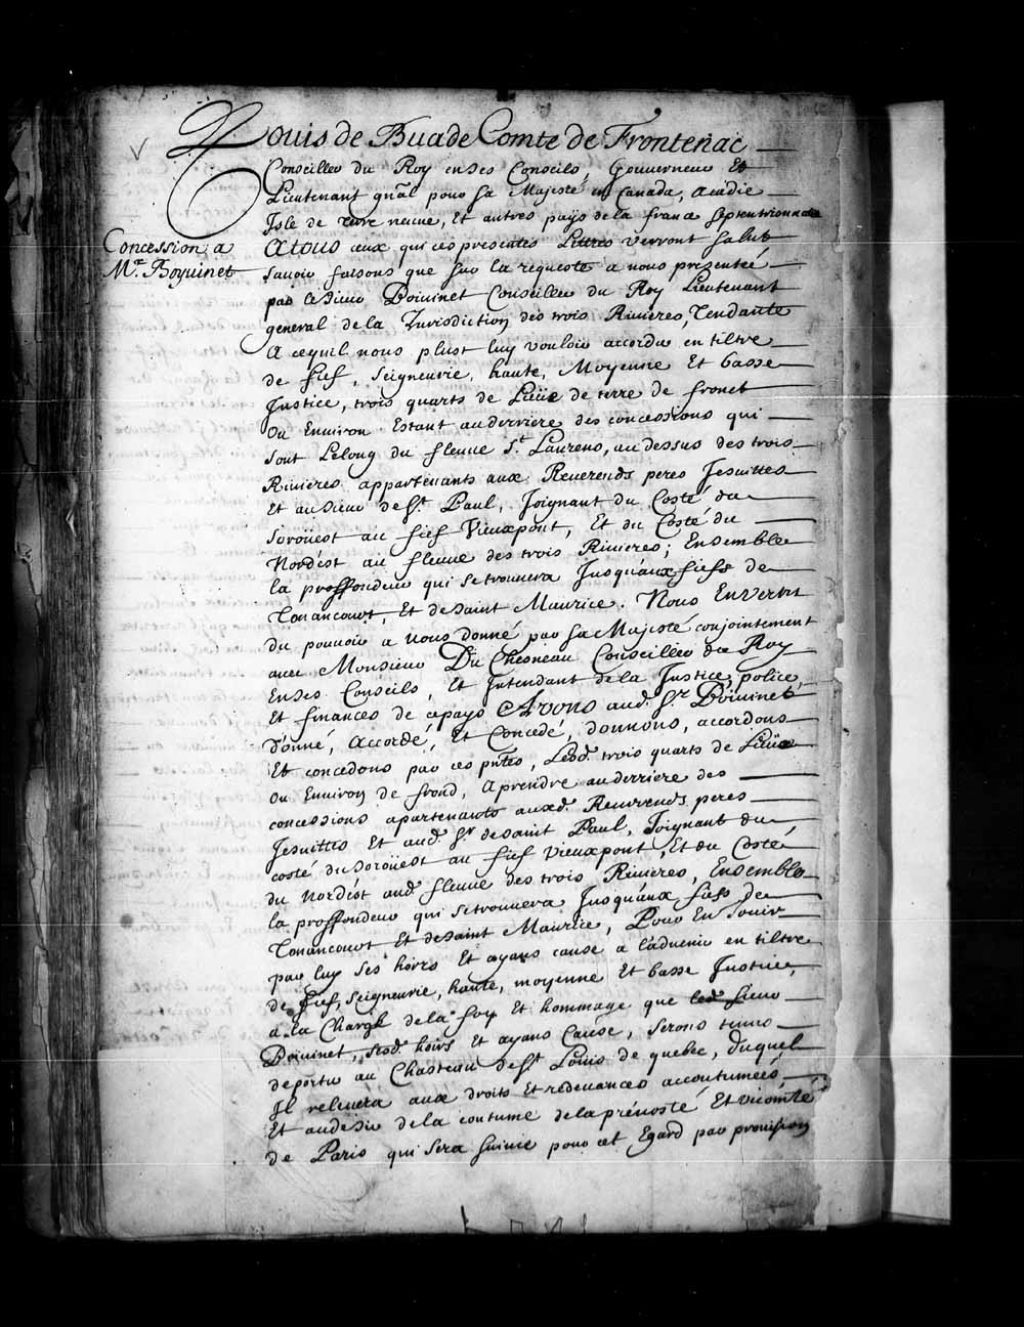 Louis de Buade Comte de Frontenac
Conseiller du Roy en ses Conseils, Gouverneur Et
Lieutenant gñal pour sa Majesté en Canada, Acadie
Isle de terre neuue, Et autres pays de la france septentrionnale
Concession a
Mr. Boyuinet
A tous ceux qui ces presentes Lettres verront Salut
sauoir faisons que sur la requeste a nous presenteé
par le sieur Boiuinet Conseiller du Roy Lieutenant
general de la Jurisdiction des trois Riuieres, Tendante
A cequil nous plust luy vouloir accorder en tiltre
de fief, seigneurie, haute, Moyenne Et basse
Justice, trois quarts de Lieüe de terre de front
Ou Enuiron Estant au derriere des concessions qui
sont Lelong du fleuue St. Laurens, au dessus des trois
Riuieres appartenants aux Reuerends peres Jesuittes
Et au sieur de St. Paul, Joignant du Costé du
soroüest au fief Vieuxpont, Et du Costé du
Nordést au fleuue des trois Riuieres; Ensemble
la proffondeur qui se trouuera Jusquáux fiefs de
Tonancourt, Et de saint Maurice. Nous En vertu
du pouuoir a nous donné par sa Majesté conjointement
auec Monsieur Du Chesneau Conseiller du Roy
En ses Conseils, Et Jntendant de la Justice, police,
Et finances de cepays Avons aud. Sr. Boiuinet
donné, accordé, Et Concedé, donnons, accordons
Et concedons par ces pñtes, Lesd. trois quarts de Lieüe
Ou Enuiron de frond, a prendre au derriere des
concessions apartenants auxd. Reuerends peres
Jesuittes Et aud. Sr. de saint Paul, Joignant du
costé du soroüest au fief vieuxpont, Et du Costé
du Nordést aud. fleuue des trois Riuieres, Ensemble
la proffondeur qui se trouuera Jusquáux fiefs de
Tonancourt Et de saint Maurice, Pour En Jouir
par luy ses hoirs Et ayans cause a l'aduenir en tiltre
de fief, seigneurie, haute, moyenne Et basse Justice,
a la Charge de la foy Et hommage que led. sieur
Boiuinet, sesd. hoirs Et ayans Cause, serons tenus
de porter au Chasteau de St. Louis de quebec, duquel
Jl releuera aux droits Et redeuances accoutumeés
Et au desir de la coutume de la préuosté Et vicomté
de Paris qui sera suiuie pour cet Egard par prouision